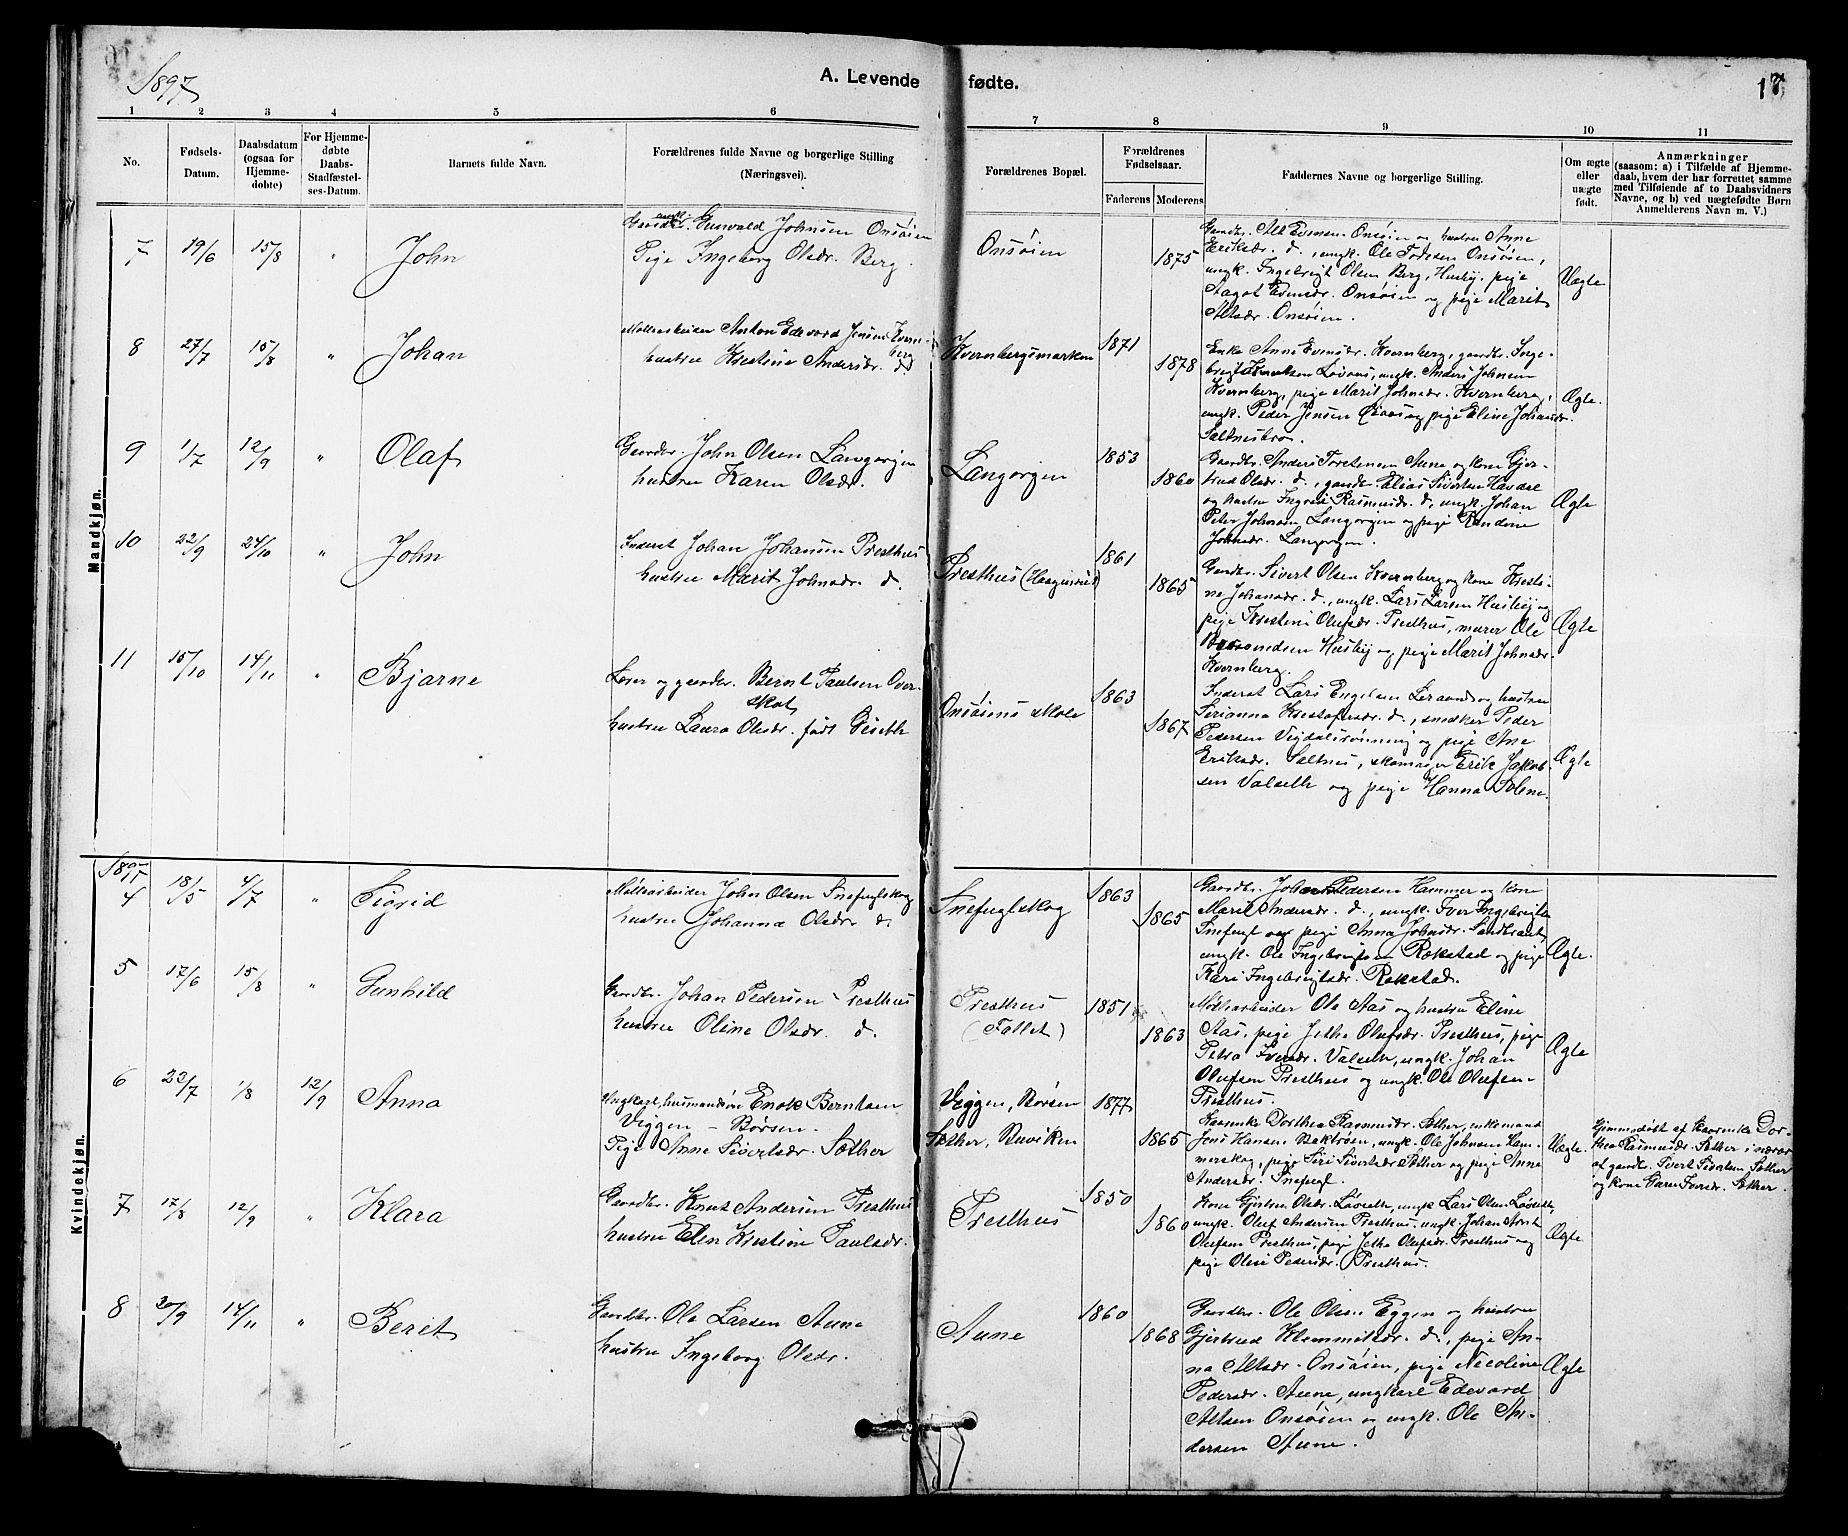 1897
A. Levende fødte.
17
1 2 3 4 5 6 7 8 9 10 11
No.
Fødsels-Datum.
Daabsdatum (ogsaa for Hjemmedøbte)
For Hjemmedøbte Daabs-Stadfæstelses-Datum.
Barnets fulde Navn.
Forældrenes fulde Navne og borgerlige Stilling
(Næringsvei).
Forældrenes Bopæl.
Forældrenes Fødselsaar.
Faderens Moderens
Faddernes Navne og borgerlige Stilling.
Om ægte eller uægte født.
Anmærkninger
(saasom: a) i Tilfælde af Hjemmedaab, hvem der har forrettet samme med Tilføiende af to Daabsvidners Navne, og b) ved uægtefødte Børn Anmelderens Navn m. V.)
Mandkjøn.
7 19/6 15/8 " John
ungk. Gunvald Johnsen Onsøien
Pige Ingeborg Olsdr. Berg.
Onsøien
1875
Gaardbr. Alt Evensen Onsøien og hustru Anne
Eriksdr. d., ungk. Ole Onsøien,
ungk. Ingebrigt Olsen Berg, Husby, pige
Aagot Onsøien og pige Marit
Altsdr. Onsøien.
Uægte
8 27/7 15/8 " Johan
Anton Edevard Jensen Kvernberg
hustru Kristine Andersdr. d
Kvernbergsmarken
1871
1878
Enke Anne Evensdr. Kvernberg, gaardbr. Inge-
brigt Løvaas, ungk. Anders Johnsen
Kvernberg, pige Marit Johnsdr. Kvernberg,
ungk. Peder Jensen og pige Eline Johansdr.
Saltnes
Ægte.
9 1/7 12/9 " Olaf
Gaardbr. John Olsen Langørgen
hustru Karen Olsdr.
Langørgen
1853
1860
Gaardbr. Anders Aune og kone Gjer-
trud Olsdr. d., gaardbr. Elias Sivertsen
og hustru Ingrid Rasmusdr. d., ungk. Johan
Peter Johnsen Langørgen og pige Randine
Johnsdr. Langørgen.
Ægte
10 22/9 24/10 " John
Inderst Johan Johansen Presthus
hustru Marit Johnsdr. d.
Presthus
1861
1865
Gaardbr. Sivert Olsen Kvernberg og kone Kresti-
ne Johansdr. d., ungk. Lars Larsen Husby og
pige Kristine Olufsdr. Presthus, murer Ole
Husby og pige Marit Johnsdr.
Kvernberg.
Ægte
11 15/10 14/11 " Bjarne
Lærer og gaardbr. Bernt Paulsen Over-
skot
hustru Laura Olsdr. født
Onsøiens skole
1863
1867
Inderst Lars Engelsen Leraand og hustru
Serianna Kristofersdr. d., snedker Peder
Pedersen Vigdalsrønning og pige Ane
Eriksdr. Saltnes, skomager Erik Jakob-
sen Valseth og pige Hanna
Ægte
Kvindekjøn.
1897
4 18/5 4/7 " Sigrid
Møllearbeider John Olsen Snefuglskog
hustru Johanna Olsdr d.
Snefuglskog
1863
1865
Gaardbr. Johan Pedersen Hammer og kone
Marit Andersdr. d., ungk. Iver Ingebrigtsen
Snefugl og pige Anna Johnsdr.
ungk. Ole Ingebrigtsen Rekstad og pige
Kari Ingebrigtsdr. Rekstad.
Ægte.
5 17/6 15/8 " Gunhild
Gaardbr. Johan Pedersen Presthus
hustru Oline Olsdr. d.
Presthus
1851
1863
Møllearbeider Ole Aas og hustru Eline
Aas, pige Jetha Olufsdr. Presthus, pige
Petra Iversdr. Valseth, ungk. Johan
Olufsen Presthus og ungk. Ole Olufsen
Presthus.
Ægte
6 23/7 1/8 12/9 Anna
Ungkarl, Enok Berntsen
Viggen - Børsen.
Pige Anne Sivertsdr. Sæther
Viggen, Børsen
Sæther, Buviken
1877
1865
Dorthea Rasmusdr. Sæther, enkemand
Jens Hansen, ungk. Ole Johnsen Ham-
merskog, pige Siri Sivertsdr. Sæther og pige Anna
Andersdr. Snefugl.
Uægte.
Hjemmedøbt af Dor-
thea Rasmusdr. Sæther i nærvær
af gaardbr. Sivertsen Sæther
og kone Iversdr. Sæther.
7 17/8 12/9 " Klara
Gaardbr. Knut Andersen Presthus
hustru Elen Kristine Paulsdr.
Presthus
1850
1860
Kone Olsdr. Løvseth, ungk. Lars Olsen Løvseth,
ungk. Oluf Andersen Presthus, ungk. Johan
Olufsen Presthus, pige Jetha Olufsdr. Presthus og
pige Pedersdr. Presthus.
Ægte
8 20/9 14/11 " Berit
Gaardbr. Ole Larsen Aune
hustru Ingeborg Olsdr.
Aune
1860
1868
Gaardbr. Ole Olsen Eggen og hustru
Gjertrud Klemmitsdr. d., pige An-
na Altsdr. Onsøien, pige Nicoline
Pedersdr. Aune, ungkarl Edevard
Altsen Onsøien og ungk. Ole An-
dersen Aune.
Ægte